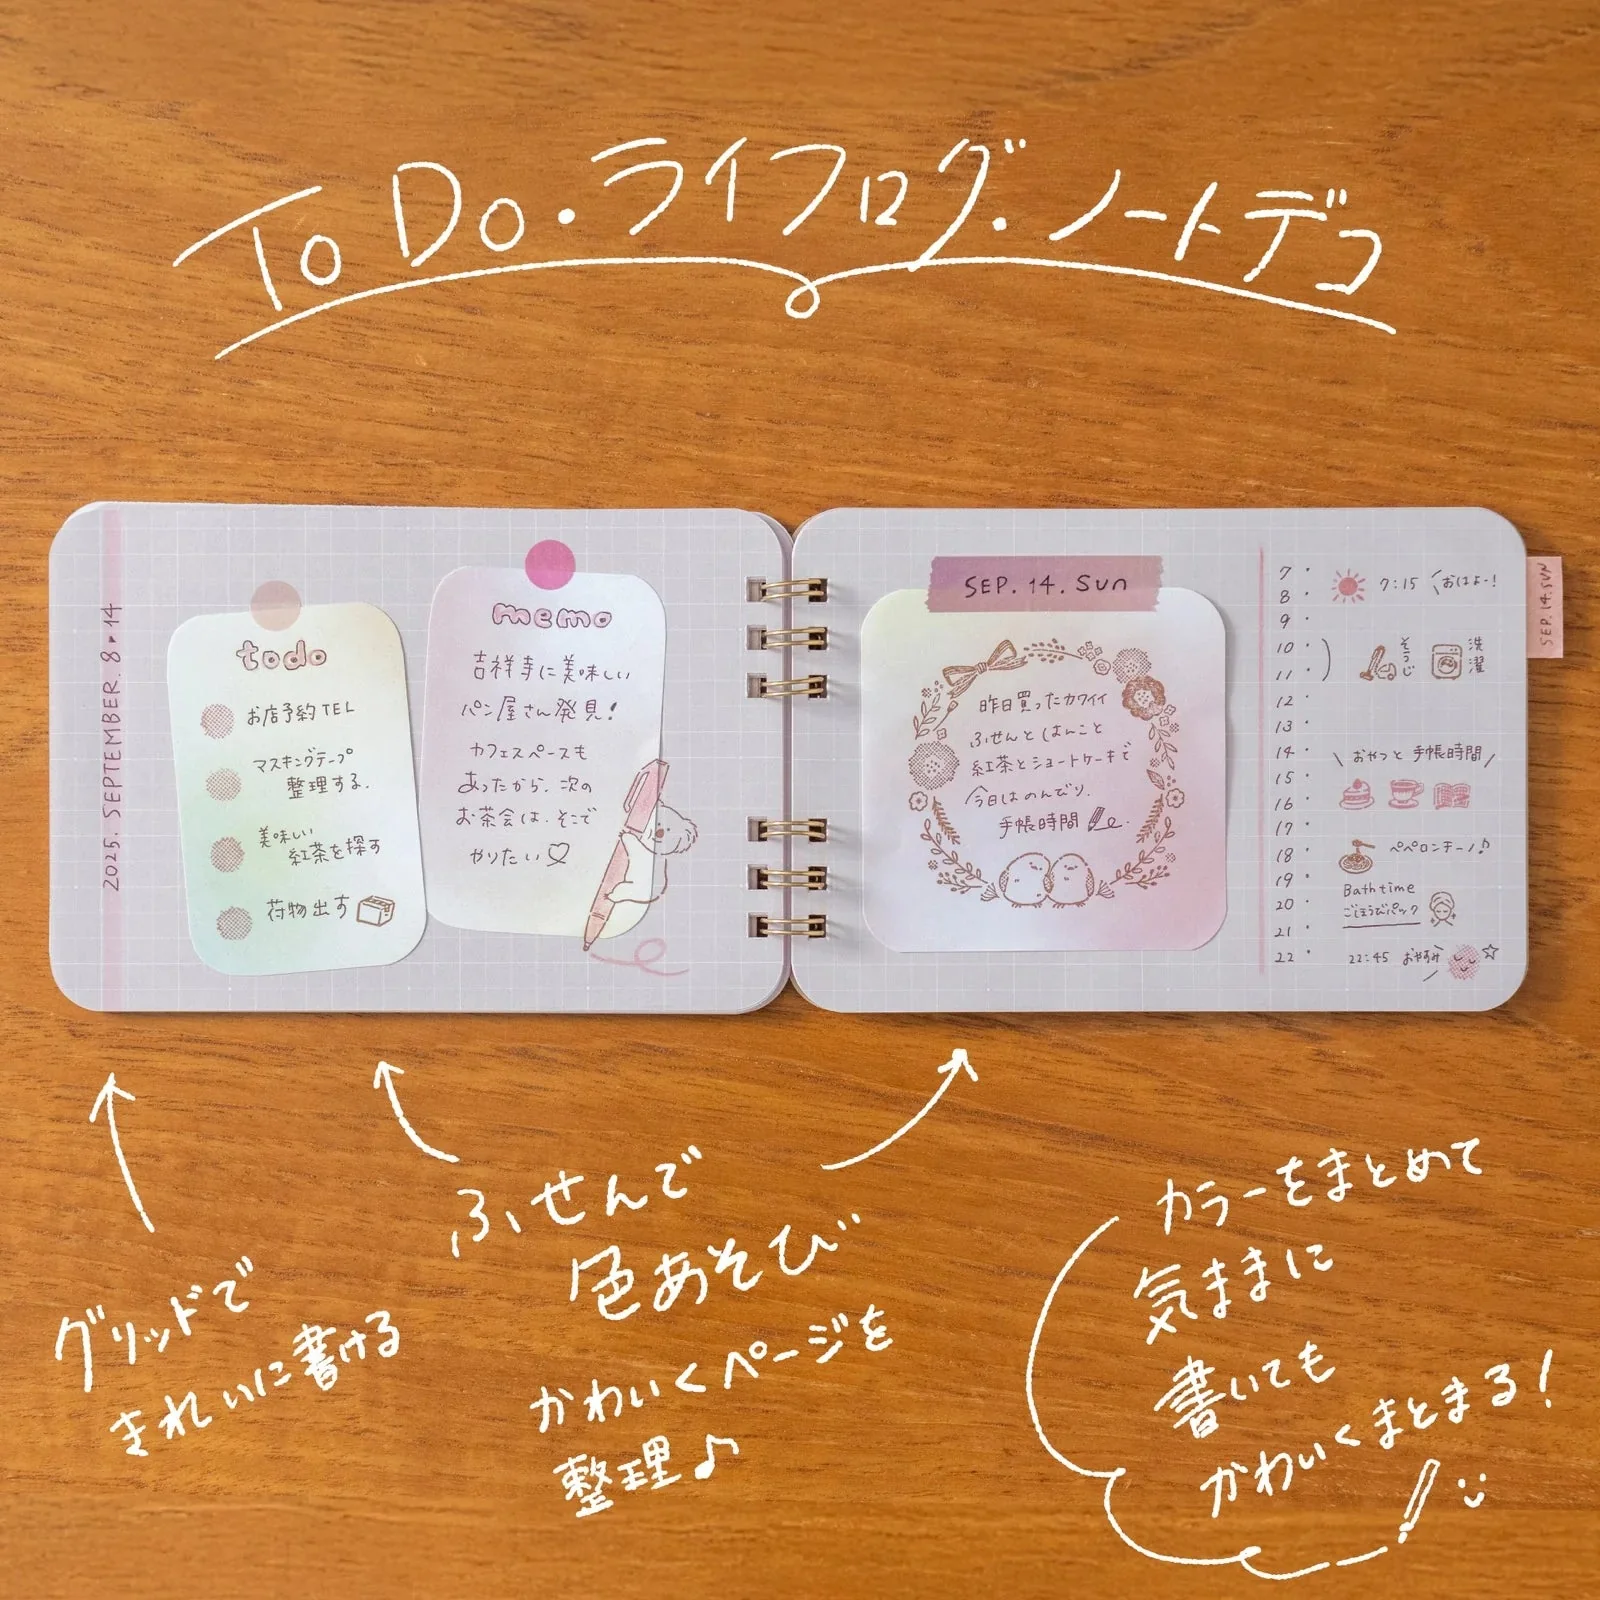 To Do・ライフログ・ノートデコ
2025. SEPTEMBER. 8▸14
todo
お店予約TEL
マスキングテープ
整理する.
美味しい
紅茶を探す
荷物出す
memo
吉祥寺に美味しい
パン屋さん発見!
カフェスペースも
あったから、次の
お茶会は、そこで
やりたい♡
SEP. 14. Sun
昨日買ったカワイイ
ふせんとはんこと
紅茶とショートケーキで
今日はのんびり、
手帳時間
7
8
9
10
11
12
13
14
15
16
17
18
19
20
21
22
7:15 \おはよー!
そうじ
洗濯
\おやつと手帳時間/
ペペロンチーノ♪
Bath time
ごほうびパック
22:45 おやすみ
SEP.14.SUN
グリッドで
きれいに書ける
ふせんで
色あそび
かわいくページを
整理♪
カラーをまとめて
気ままに
書いても
かわいくまとまる!